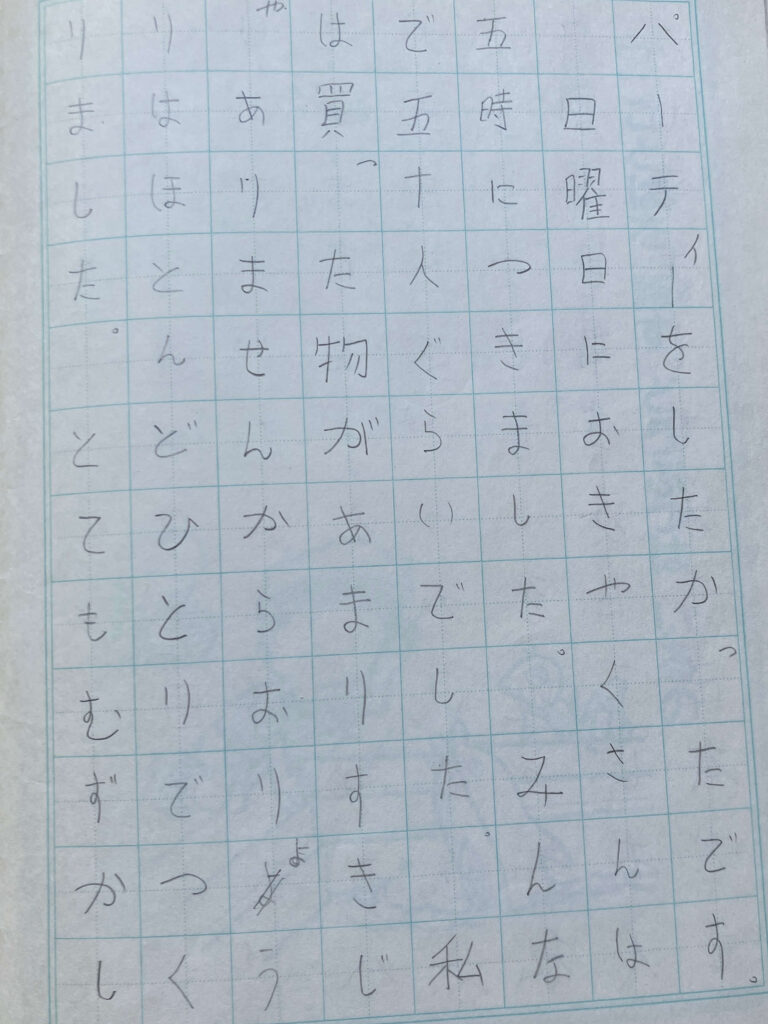 パーティーをしたかったです。
日曜日におきやくさんは
五時につきました。みんな
で五十人ぐらいでした。私
は買った物があまりすきじ
ゃありませんからおりょう
りはほとんどひとりでつく
りました。とてもむずかし